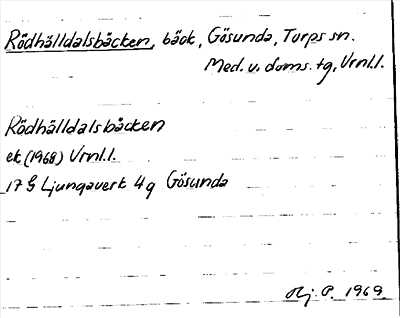 Rödhälldalsbäcken, bäck, Gösunda, Torps sn.
Med. v. doms. tg, Vrnl.l.
Rödhälldalsbäcken
ek (1968) Vrnl.l.
17 G Ljungaverk 4g Gösunda
Hj. P. 1969